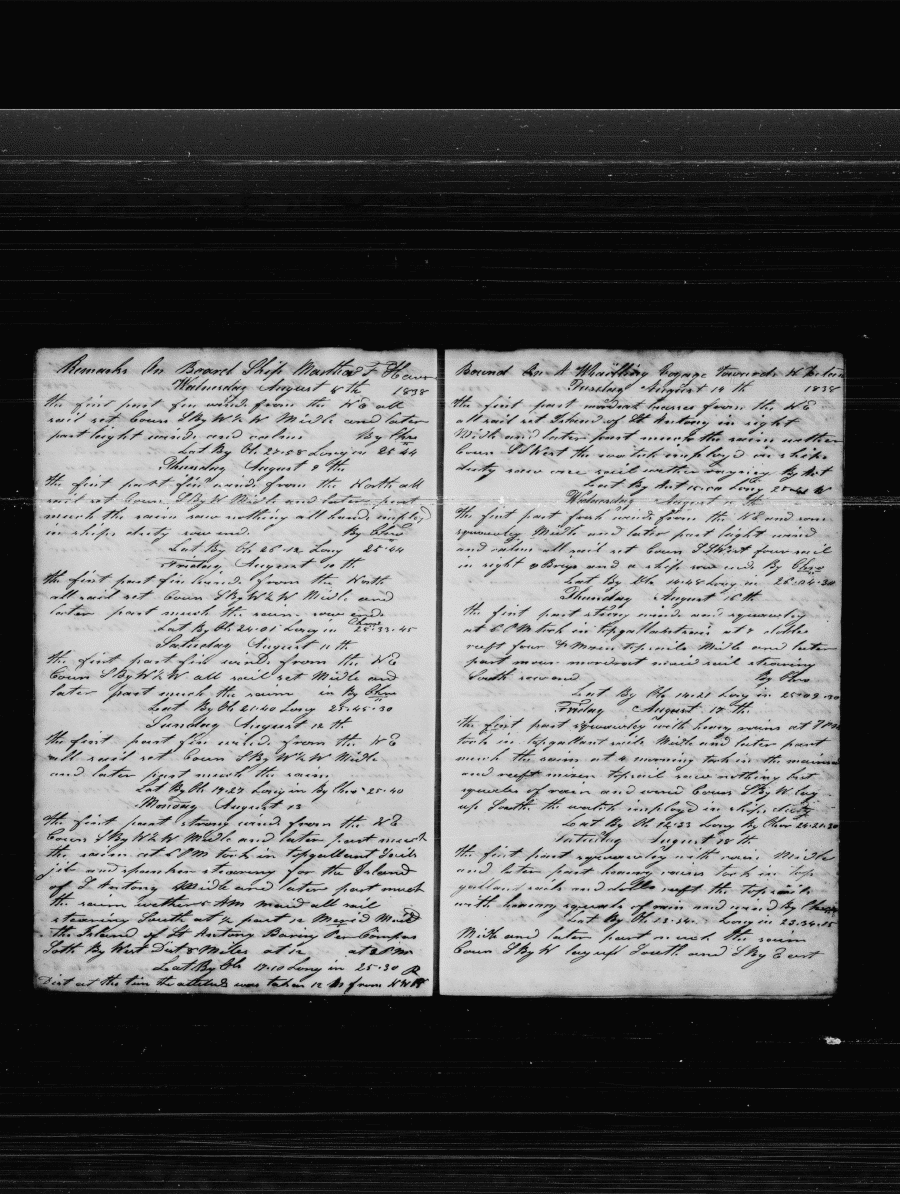 Remarks On Board Ship Martha F Haver
Wednesday August 8 th 1838
the first part fin wind from the NE all
sail set Cours S By W ½ W Midle and later
part light winds and calms By Chro
Lat By Ob 27=58 Long in 25 44
Thursday August 9 th
the first part fin wind from the North all
sail set Cours S By W Midle and later part
much the saim saw nothing all hands imployd
in ships duty so end. By Chro
Lat By Ob 26=12 Long 25=44
Friday August 10 th
the first part fin wind from the North
all sail set Cours S By W ½ W Midle and
later part much the saim so end
Lat By Ob 24=01 Long in Chro 25=33=45
Saturday August 11 th
the first part fin wind from the NE
Cours S By W ½ W all sail set Midle and
later part much the saim in By Chro
Lat By Ob 21=40 Long 25=45=30
Sunday August 12 th
the first part fin wind from the NE
all sail set Cours S By W ½ W Midle
and later part much the saim
Lat By Ob 19=27 Long in By Chro 25=40
Monday August 13
the first part strong wind from the NE
Cours S By W ½ W Midle and later part much
the saim at 6 PM took in topgallant sails
jib and spanker stearing for the Island
of St Antony Midle and later part much
the saim wether AM maid all sail
stearing South at ½ past 12 Maid
the Island of St Antony Baring Per Compas
South By West Dist 8 Miles at 12 at 2 PM
Lat By Ob 17=10 Long in 25=30
Dist at the tim the altitude was taken 12 M from
Bound On A Whailling Voyage towards
Tuesday August 14 th 1838
the first part modrat breeses from the NE
all sail set Island of St Antony in sight
Midle and later part much the saim wether
Cours SSWest the watch imployd in ships
duty saw one sail By Art
Lat By Art Long W
Wednesday August 15 th
the first part fresh wind from the NE and som
squawley Midle and later part light wind
and calms all sail set Cours SSWest four sail
in sight Brigs and a ship so end. By Chro
Lat By Ob 14=48 Long in 25=04=30
Thursday August 16 th
the first part strong wind and squawley
at 6 PM took in topgallantsails at 7 doble
reeft four & Main topsails Midle and later
part mour modrat maid sail stearing
South so end By Chro
Lat By Ob 14=21 Long in 25=09=30
Friday August 17 th
the first part squawley with heavy rains at 7 PM
took in topgallant sails Midle and later part
much the saim at 4 morning took in the mainsail
and reeft mizen topsail saw nothing but
squales of rain and wind Cours S By W lay
up South the watch imployd in ships duty
Lat By Ob 12=33 Long By Chro 24=21=30
Saturday August 18 th
the first part squawley with rain Midle
and later part heavey raines took in top
gallant sails and reeft the topsails
with heavey squales of rain and wind By Chro
Lat By Ob Long in 23=34=15
Midle and later part much the saim
Cours S By W lay up South and S By East